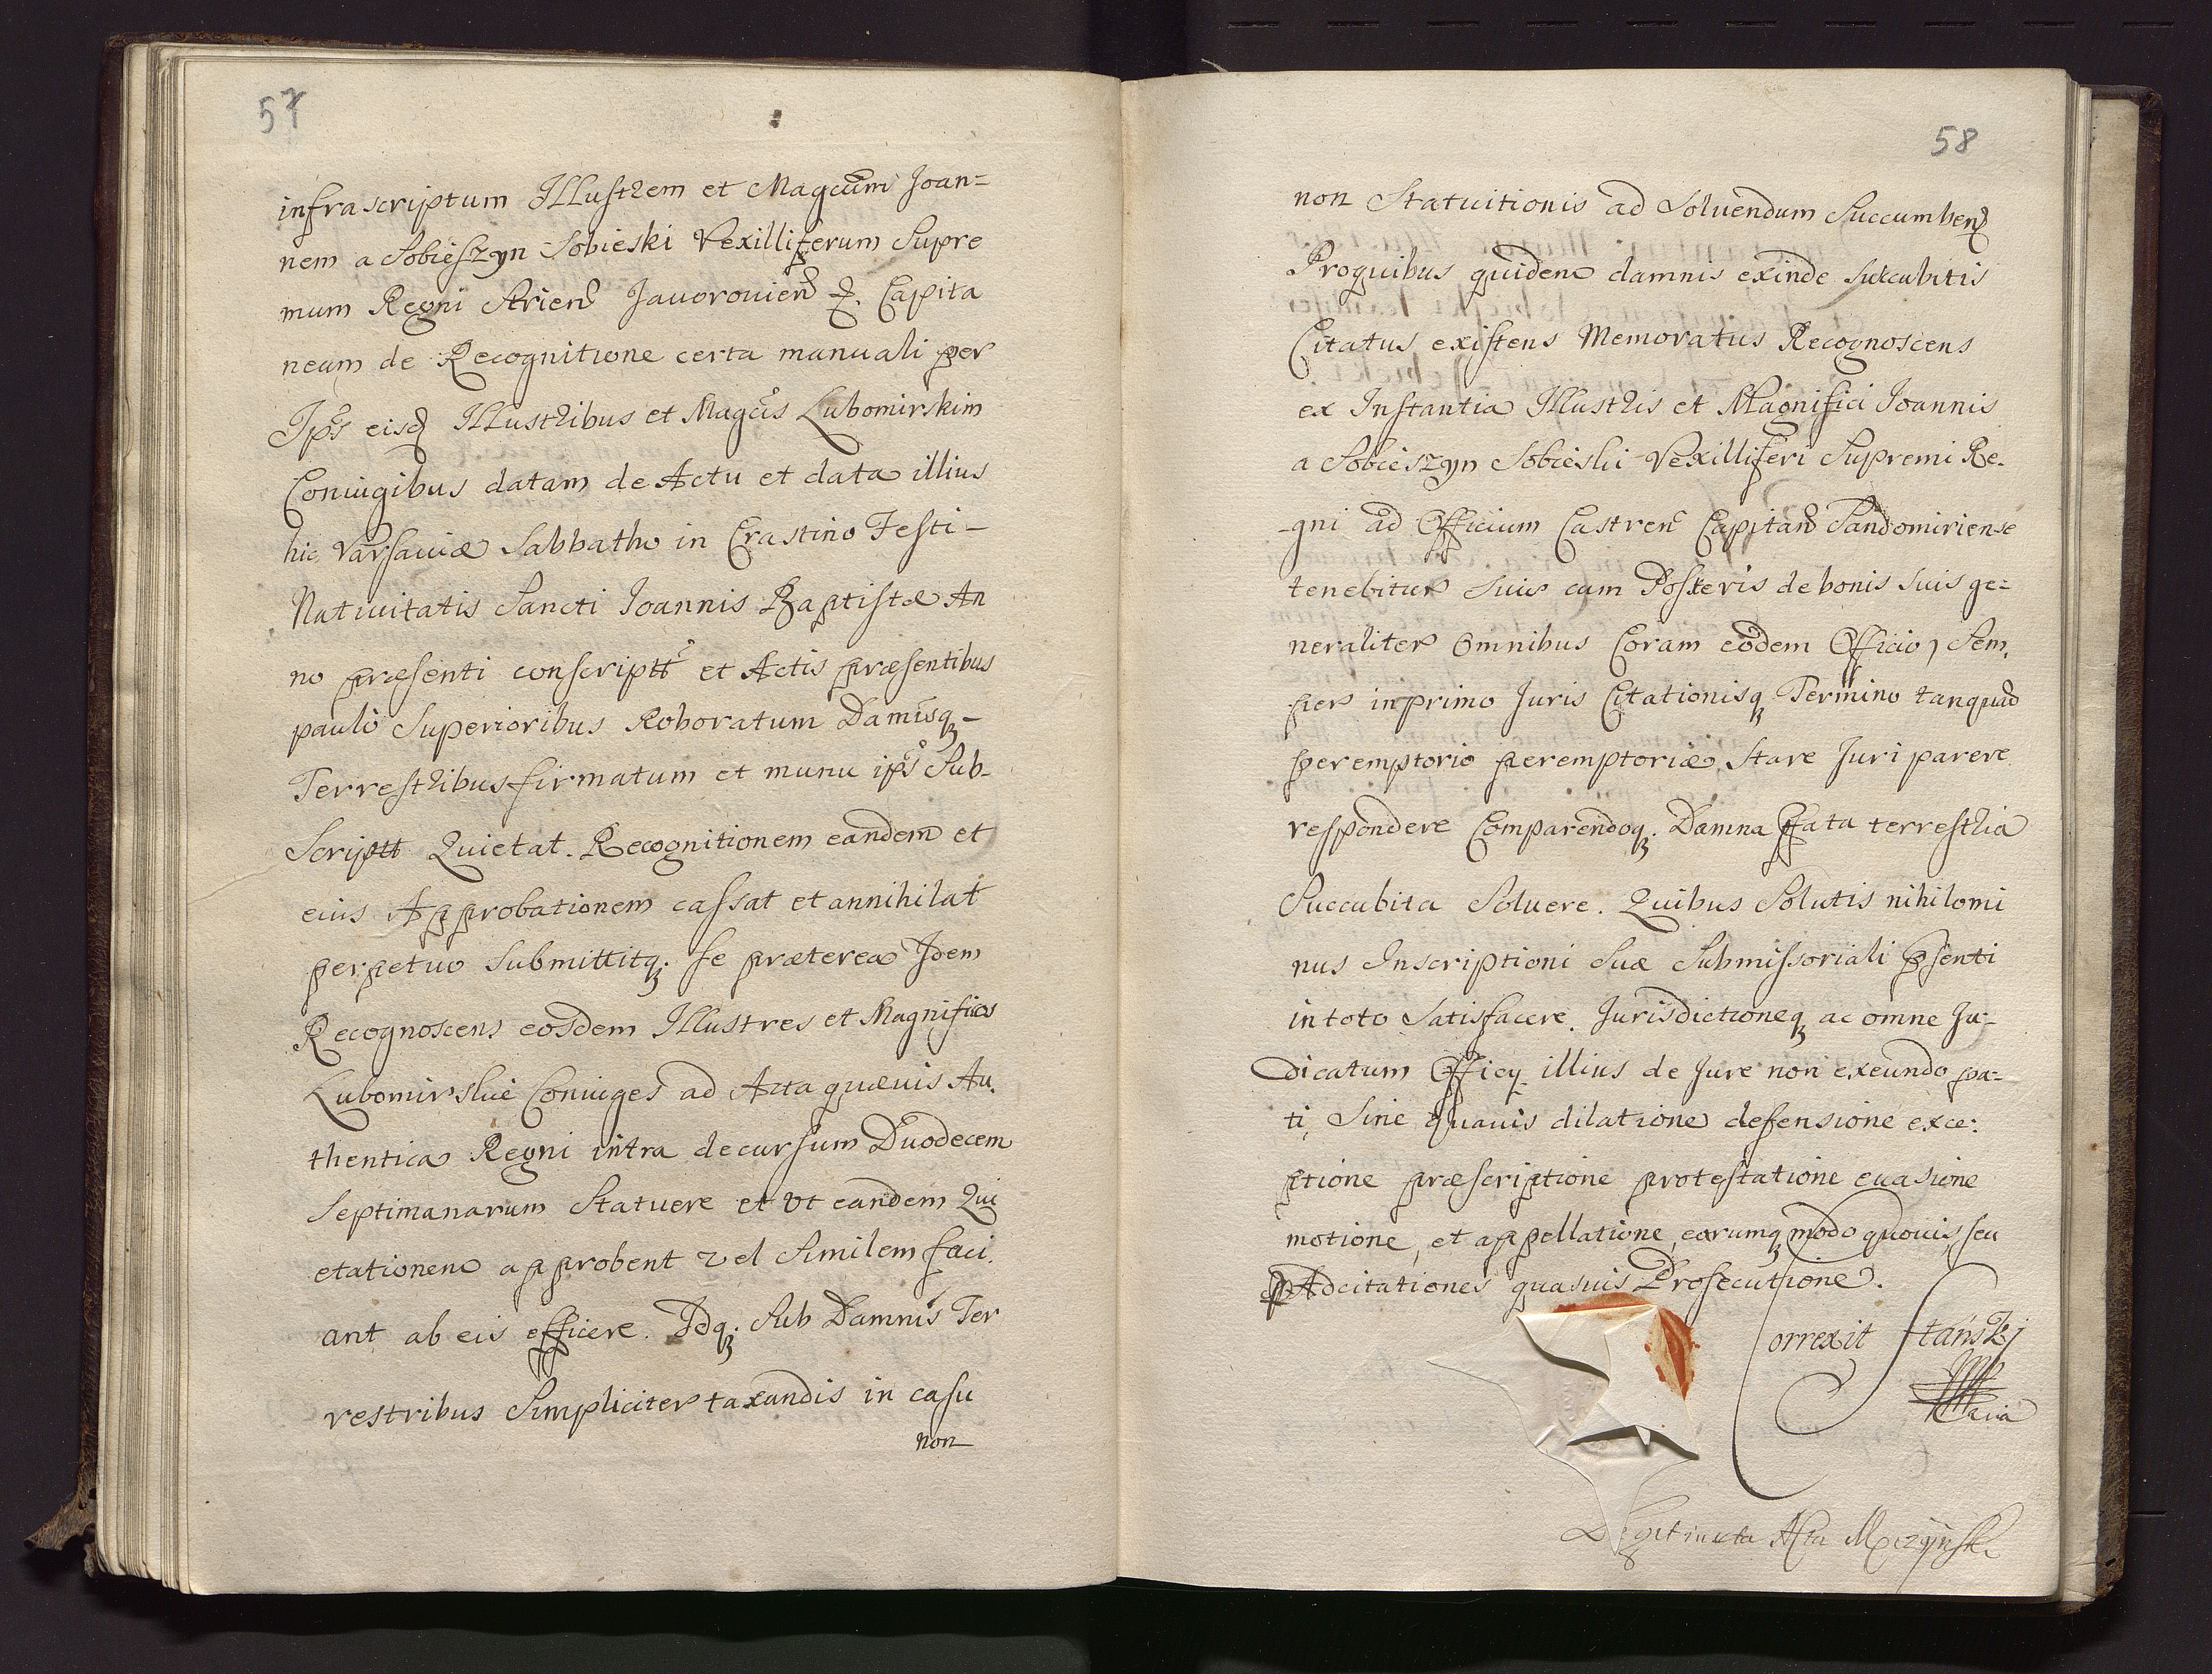 57
infrascriptum Illustrem et Magcūm Joan=
nem a Sobieszyn Sobieski Vexilliferum Supre
mum Regni Strien Javorovien &. Capita
neum de Recognitione certa manuali per
Ips eisd Illustribus et Magcis Lubomirskim
Coniugibus datam de Actu et data illius
hic Varsaviæ Sabbatho in Crastino Festi-
Nativitatis Sancti Joannis Baptistæ An
no præsenti conscriptt et Actis præsentibus
paulò Superioribus Roboratum Damisq-
Terrestribus firmatum et manu ips Sub-
Scriptt Quietat. Recognitionem eandem et
eius Approbationem cassat et annihilat
perpetuo Submittitq; se præterea Idem
Recognoscens eosdem Illustres et Magnificos
Lubomirskie Coniuges ad Acta quævis Au.
thentica Regni intra decursum Duodecem
Septimanarum Statuere et ut eandem Qui
etationem approbent vel Similem faci.
ant ab eis efficere. Idq; Sub Damnis Ter
restribus Simpliciter taxandis in casu
non
58
non Statuitionis ad Soluendum Succumben
Proquibus quidem damnis exinde Succubitis
Citatus existens Memoratus Recognoscens
ex Instantia Illustris et Magnifici Joannis
a Sobieszyn Sobieski Vexilliferi Supremi Re.
-gni ad Officium Castren Capitan Sandomiriense
tenebitur Suis cum Posteris de bonis Suis ge=
neraliter Omnibus Coram eodem Officio, Sem,
per in primo Juris Citationisq Termino tanquā
peremptorio peremptoriæ, Stare Juri parere
respondere Comparendoq. Damna Pfata terrestria
Succubita Soluere. Quibus Solutis nihilomi
nus Inscriptioni Suæ Submissoriali psenti
in toto Satisfacere. Jurisdictioneq ac omne Ju-
dicatum Officy illius de Jure non exeundo pa-
ti, Sine quavis dilatione defensione exce:
ptione præscriptione protestatione evasione
motione, et appellatione, earumq modo quovis, seu
p Adcitationes quasvis Prosecutione.
Correxit Stanski
Legit iuxta Acta